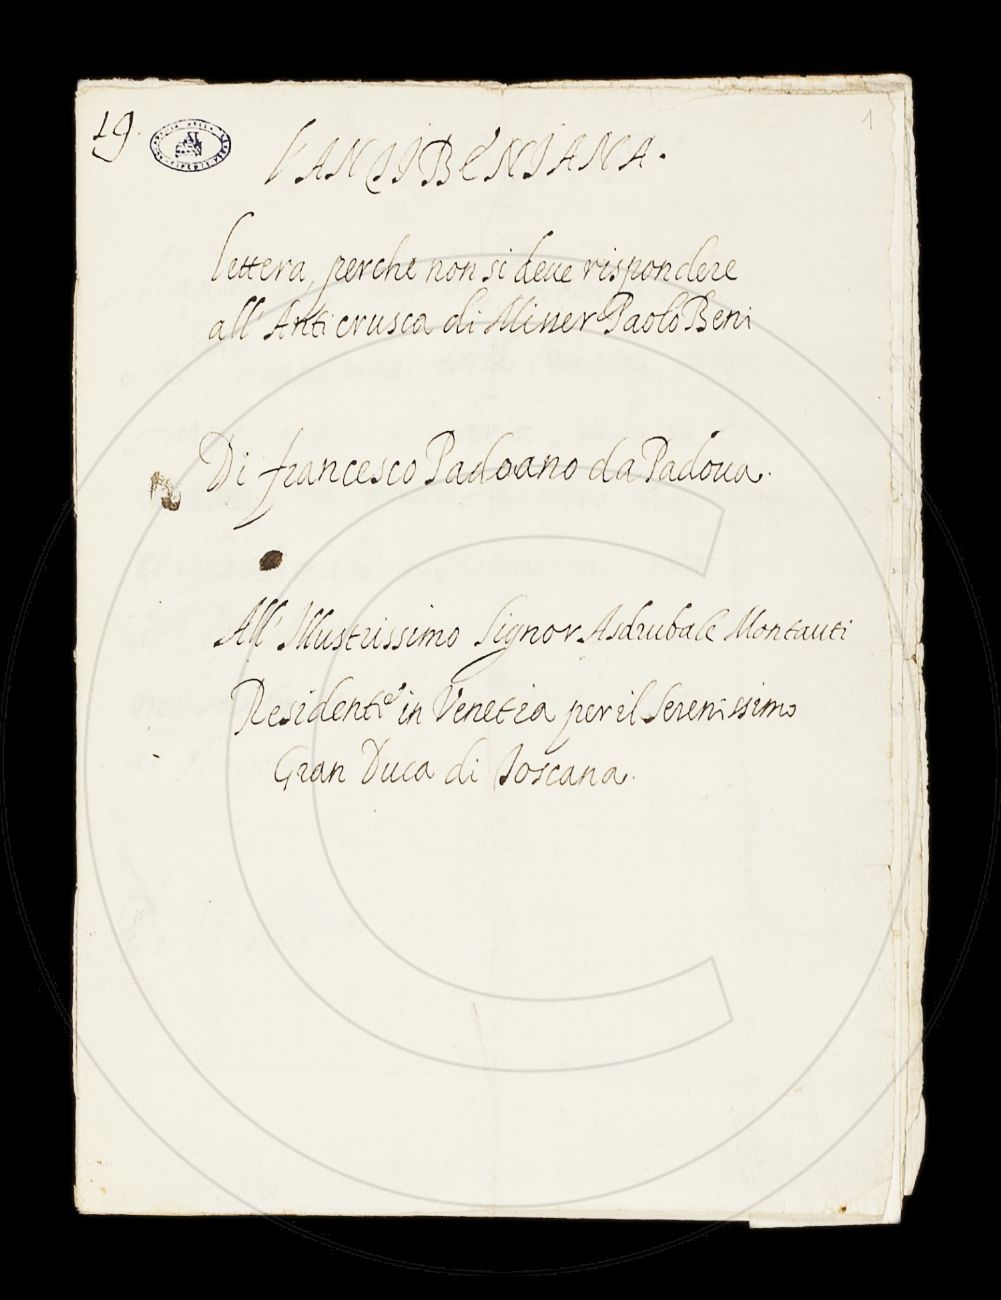 19.
1
l'ANTIBENIANA.
lettera, perche non si deue rispondere
all' Anticrusca di Messer Paolo Beni
Di francesco Padoano da Padoua.
All' Illustrissimo Signor Asdrubale Montauti
Residente in Venetia per il Serenissimo
Gran Duca di Toscana.